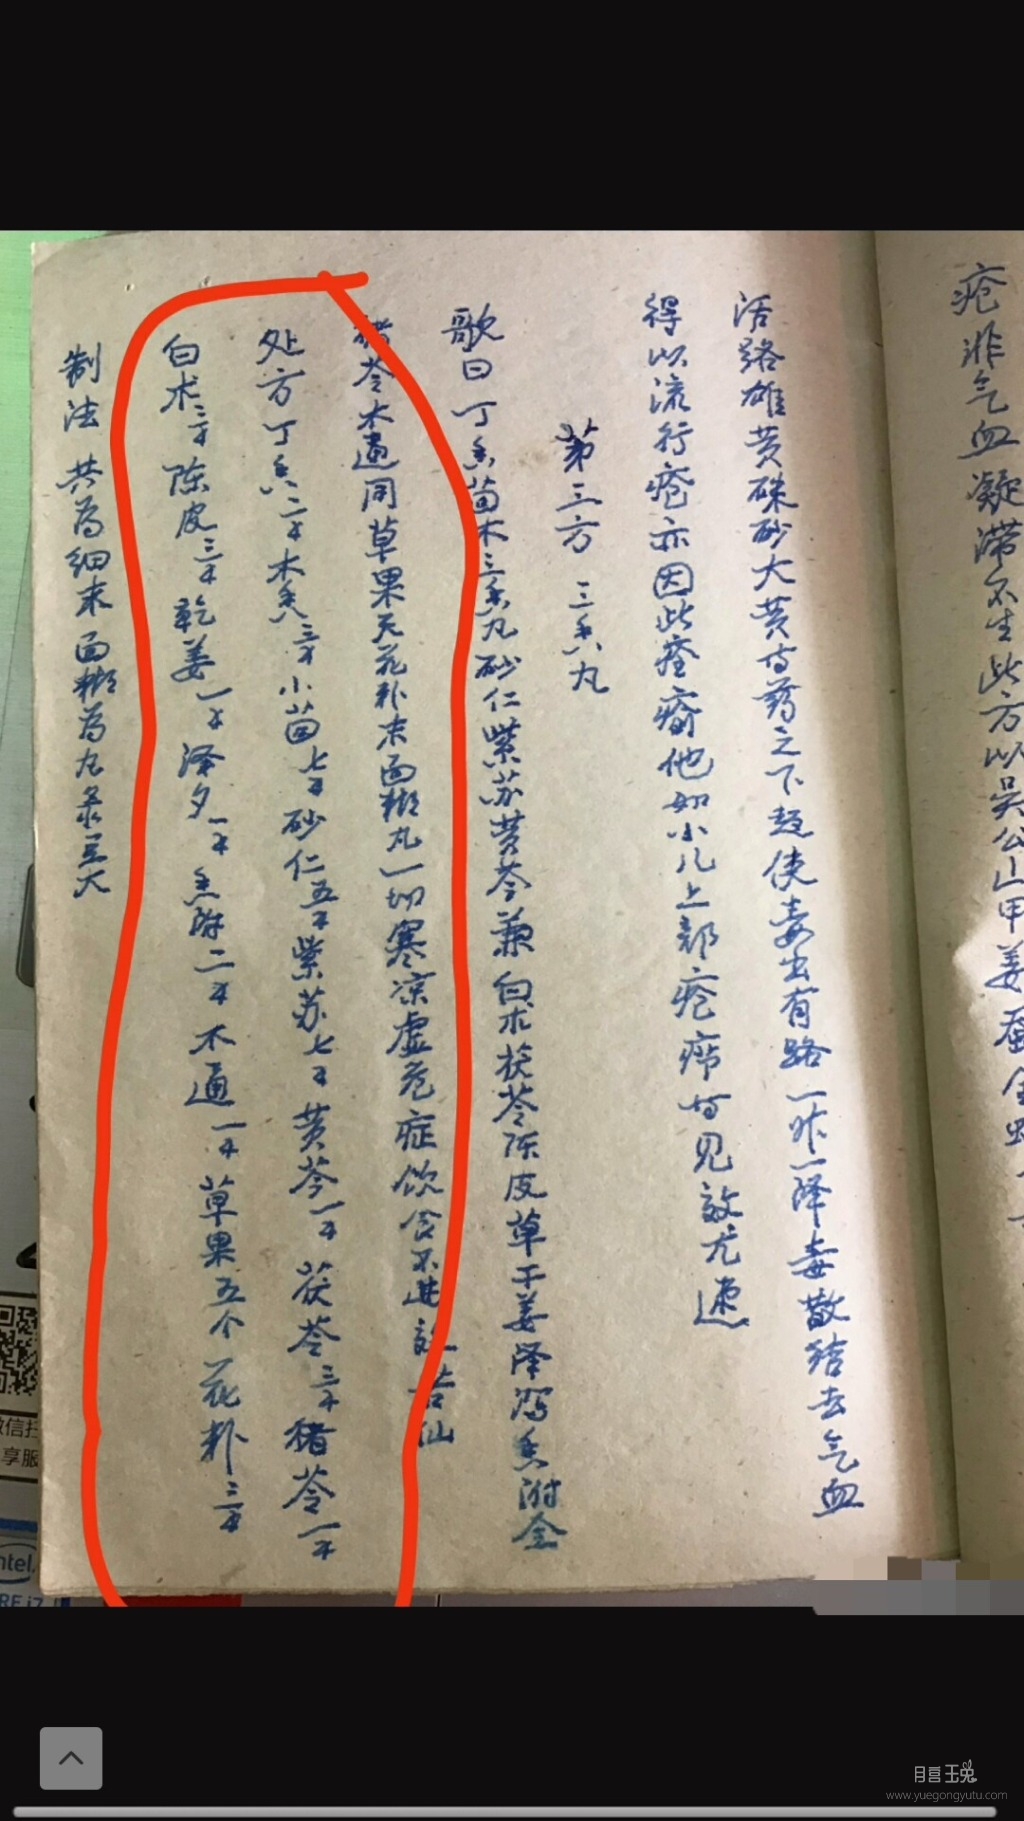 疮非气血凝滞不生此方以吴公山甲姜蚕全
活路雄黄硃砂大黄等药之下趋使毒出有路一升一降毒散结去气血
得以流行疮亦因此痊癒他如小儿上部疮疖等见效尤速
第三方 三香丸
歌曰丁香茴木三香丸砂仁紫苏黄芩兼白术茯苓陈皮草干姜泽泻香附全
猪苓木通同草果天花粉末面糊丸一切寒凉虚危症饮食不进效若仙
处方丁香二木香三小茴七砂仁五紫苏七黄芩一茯苓三猪苓一
白术三陈皮三乾姜一泽夕一香附二木通一草果五个花粉三
制法 共为细末面糊为丸彔豆大
微信扫
享服
intel
月宫玉兔
www.yuegongyutu.com